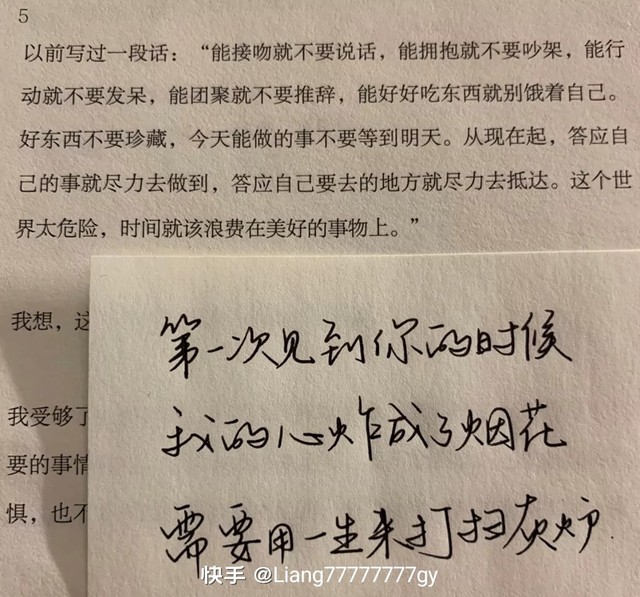 5
以前写过一段话：“能接吻就不要说话，能拥抱就不要吵架，能行
动就不要发呆，能团聚就不要推辞，能好好吃东西就别饿着自己。
好东西不要珍藏，今天能做的事不要等到明天。从现在起，答应自
己的事就尽力去做到，答应自己要去的地方就尽力去抵达。这个世
界太危险，时间就该浪费在美好的事物上。”
我想，这
我受够了
要的事情
惧，也不
第一次见到你的时候
我的心炸成了烟花
需要用一生来打扫灰炉
快手 @Liang77777777gy